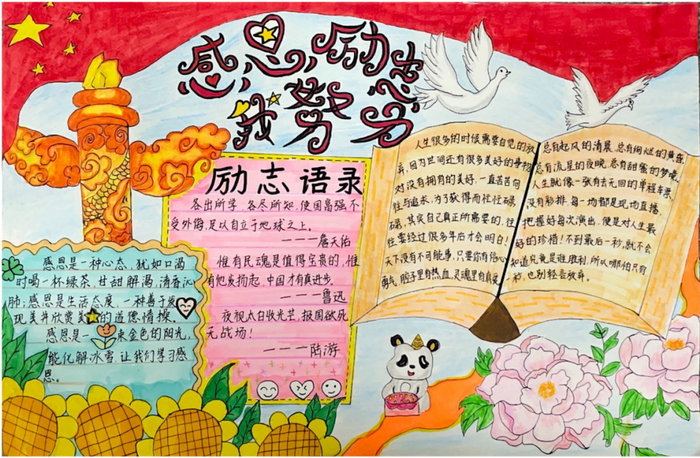 感恩,励志
我努力
励志语录
各出所学,各尽所知,使国富强不
受外侮,足以自立于地球之上。
——詹天佑
惟有民魂是值得宝贵的,惟
有他发扬起,中国才有真进步。
——鲁迅
夜视太白收光芒,报国欲死
无战场!
——陆游
感恩是一种心态,犹如口渴
时喝一杯绿茶,甘甜解渴,清香沁
肺;感恩是生活态度,一种善于发
现美并欣赏美的道德情操,
感恩是一束金色的阳光,
能化解冰雪,让我们学习感
恩。
人生很多的时候需要自觉的放
弃,因为世间还有很多美好的事物
对没有拥有的美好,一直苦苦向
往与追求,为了获得而忙忙碌
碌,其实自己真正所需要的,往
往要经过很多年后才会明白!
天下没有不可能事,只要你有信心
勇气,腔子里有热血,灵魂里有真爱
总有起风的清晨,总有绚烂的黄昏
总有流星的夜晚,总有甜蜜的梦境,
人生就像一张有去无回的单程车票,
没有彩排,每一场都是现场直播
把握好每次演出,便是对人生最
好的珍惜!不到最后一秒,就不会
知道究竟是谁胜利,所以哪怕只有
秒,也别轻言放弃。